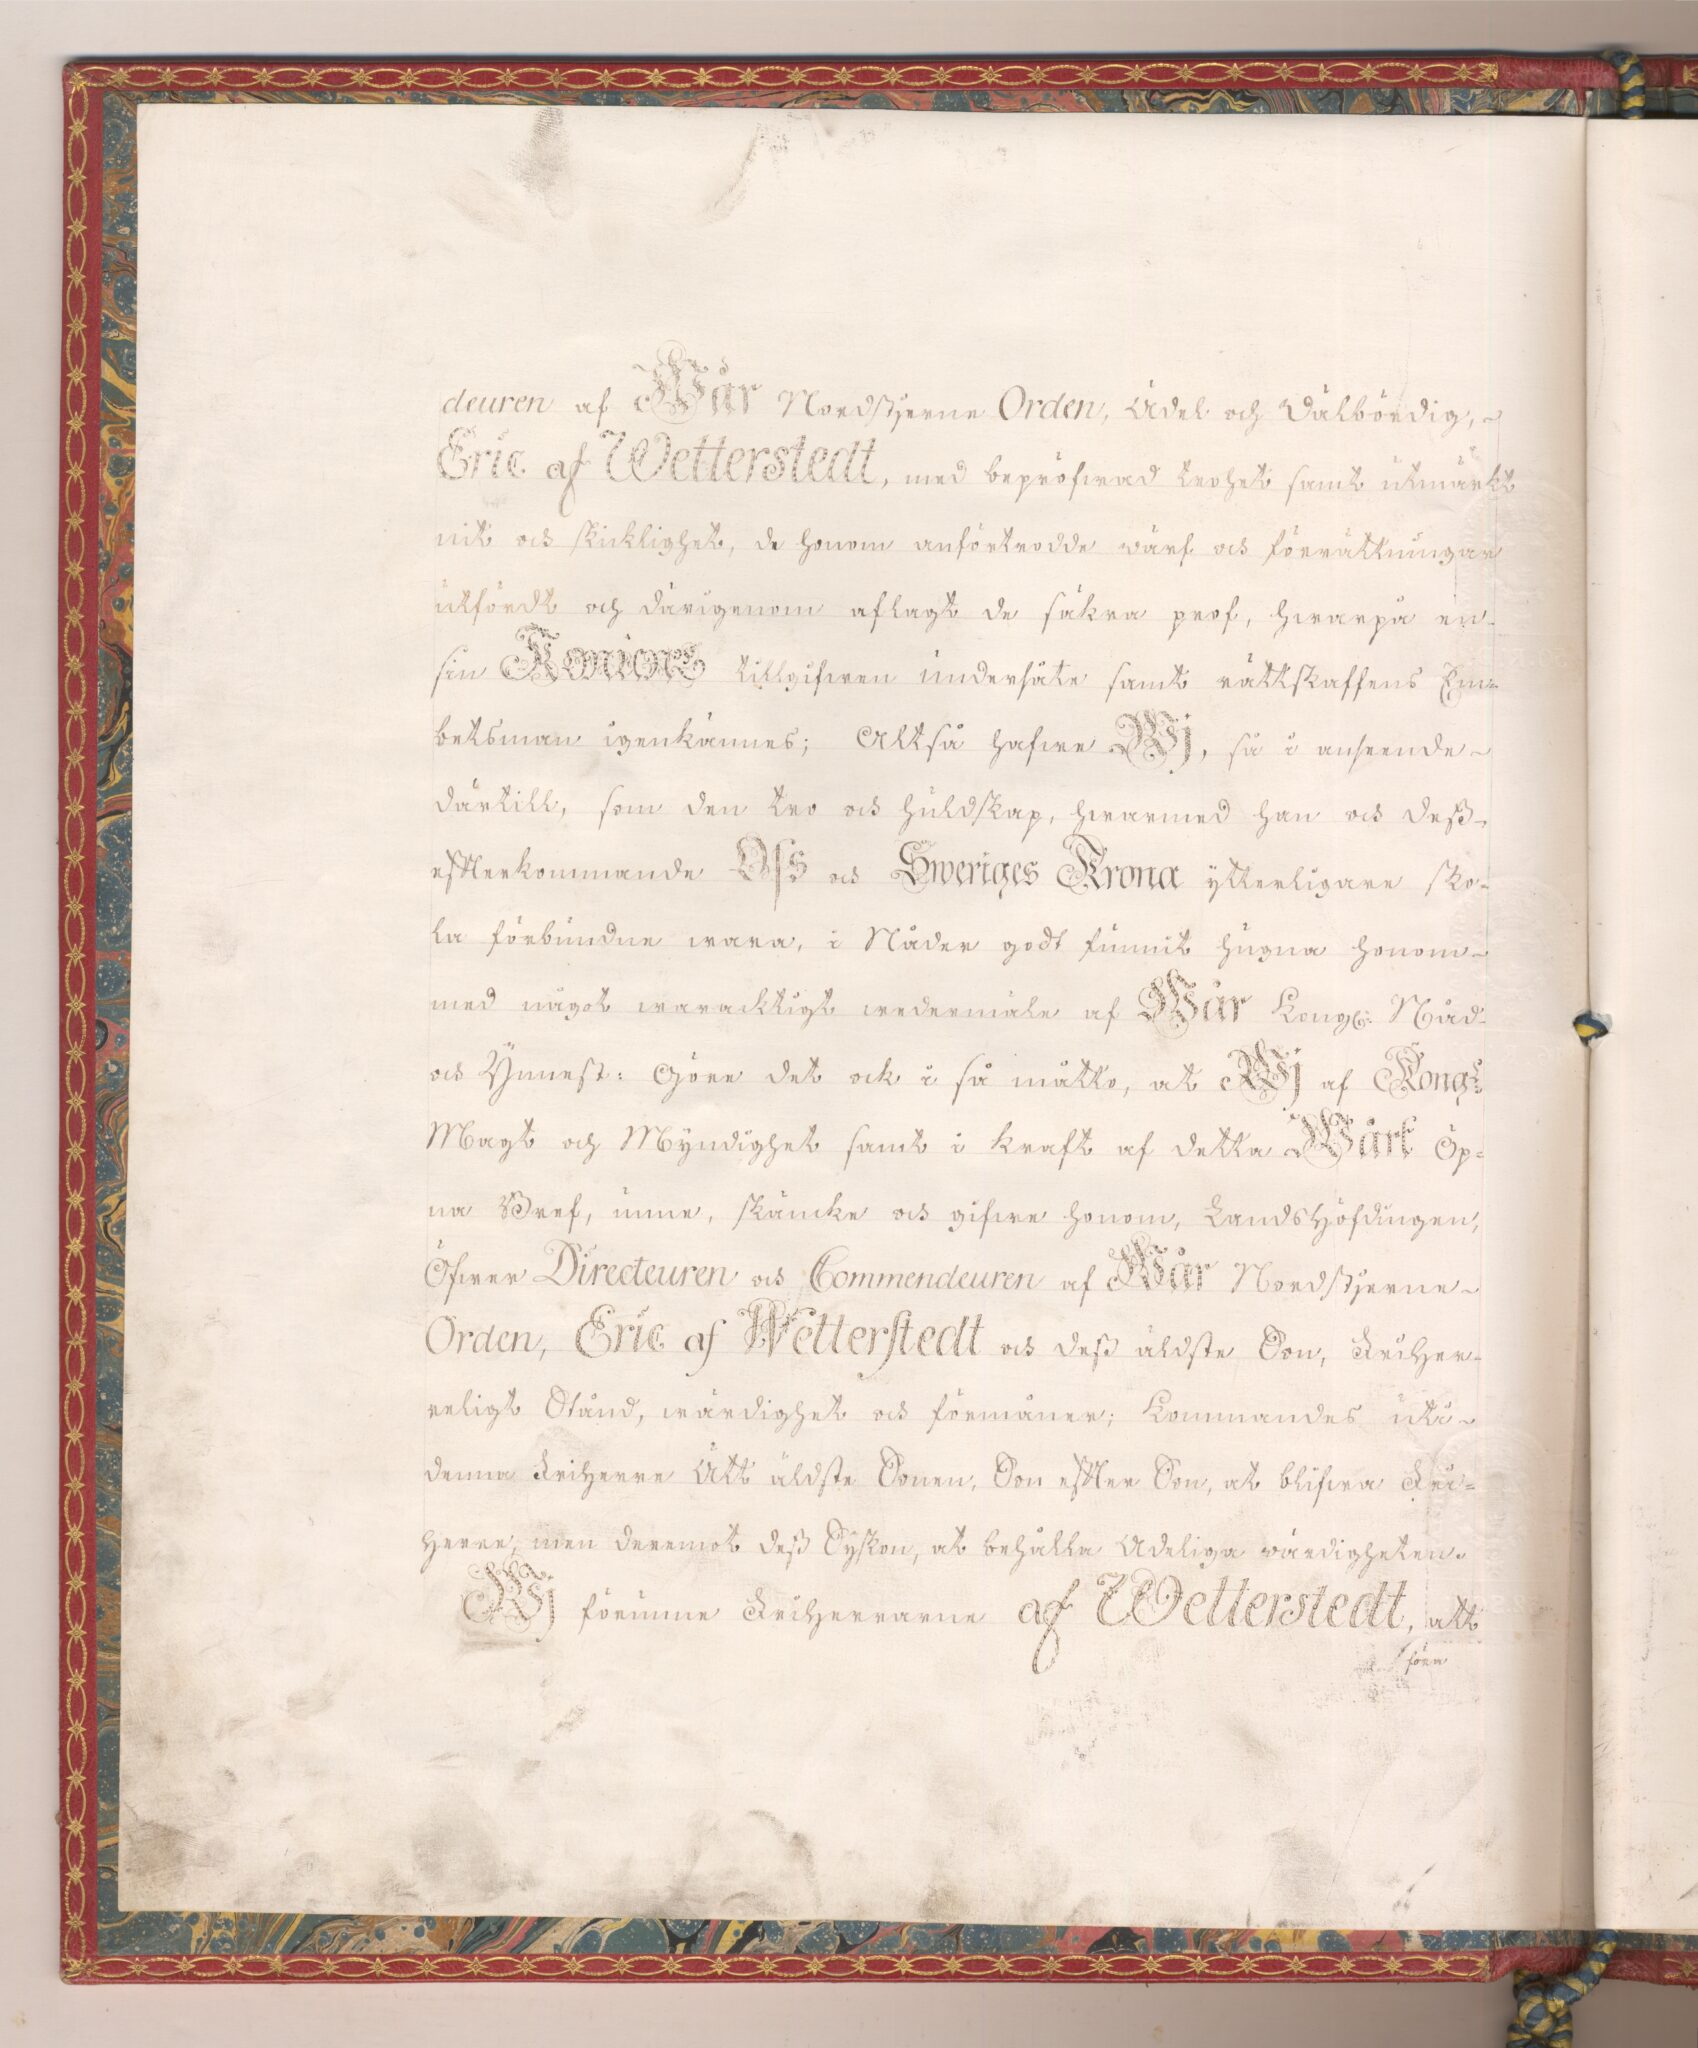 deuren af Wår Nordstjerne Orden, Adel och Wälbördig,
Eric af Wetterstedt, med bepröfwad trohet samt utmärkt
nit och skicklighet, de honom anförtrodde wärf och förrättningar
utfördt och därigenom aflagt de säkra prof, hwarpå en
sin Konung tillgifwen undersåte samt rättskaffens Em-
betsman igenkännes; Altså hafwe Wj, så i anseende
därtill, som den tro och huldskap, hwarmed han och dess
efterkommande Oss och Sweriges Krona ytterligare sko-
la förbundne wara, i Nåder godt funnit hugna honom
med något waracktigt wedermäle af Wår Kongl: Nåd
och Ynnest: Göre det ock i så måtto, at Wj af Kongl:
Magt och Myndighet samt i kraft af detta Wårt Öp-
na Bref, unne, skäncke och gifwe honom, LandsHöfdingen,
Öfwer Directeuren och Commendeuren af Wår Nordstjerne
Orden, Eric af Wetterstedt och dess äldste Son, FriHer-
religt Stånd, wärdighet och förmåner; Kommandes uti
denna FriHerre Ätt äldste Sonen, Son efter Son, at blifwa Fri-
Herre, men deremot dess Syskon, at behålla Adeliga wärdigheten.
Wj förunne FriHerrarne af Wetterstedt, att
föra